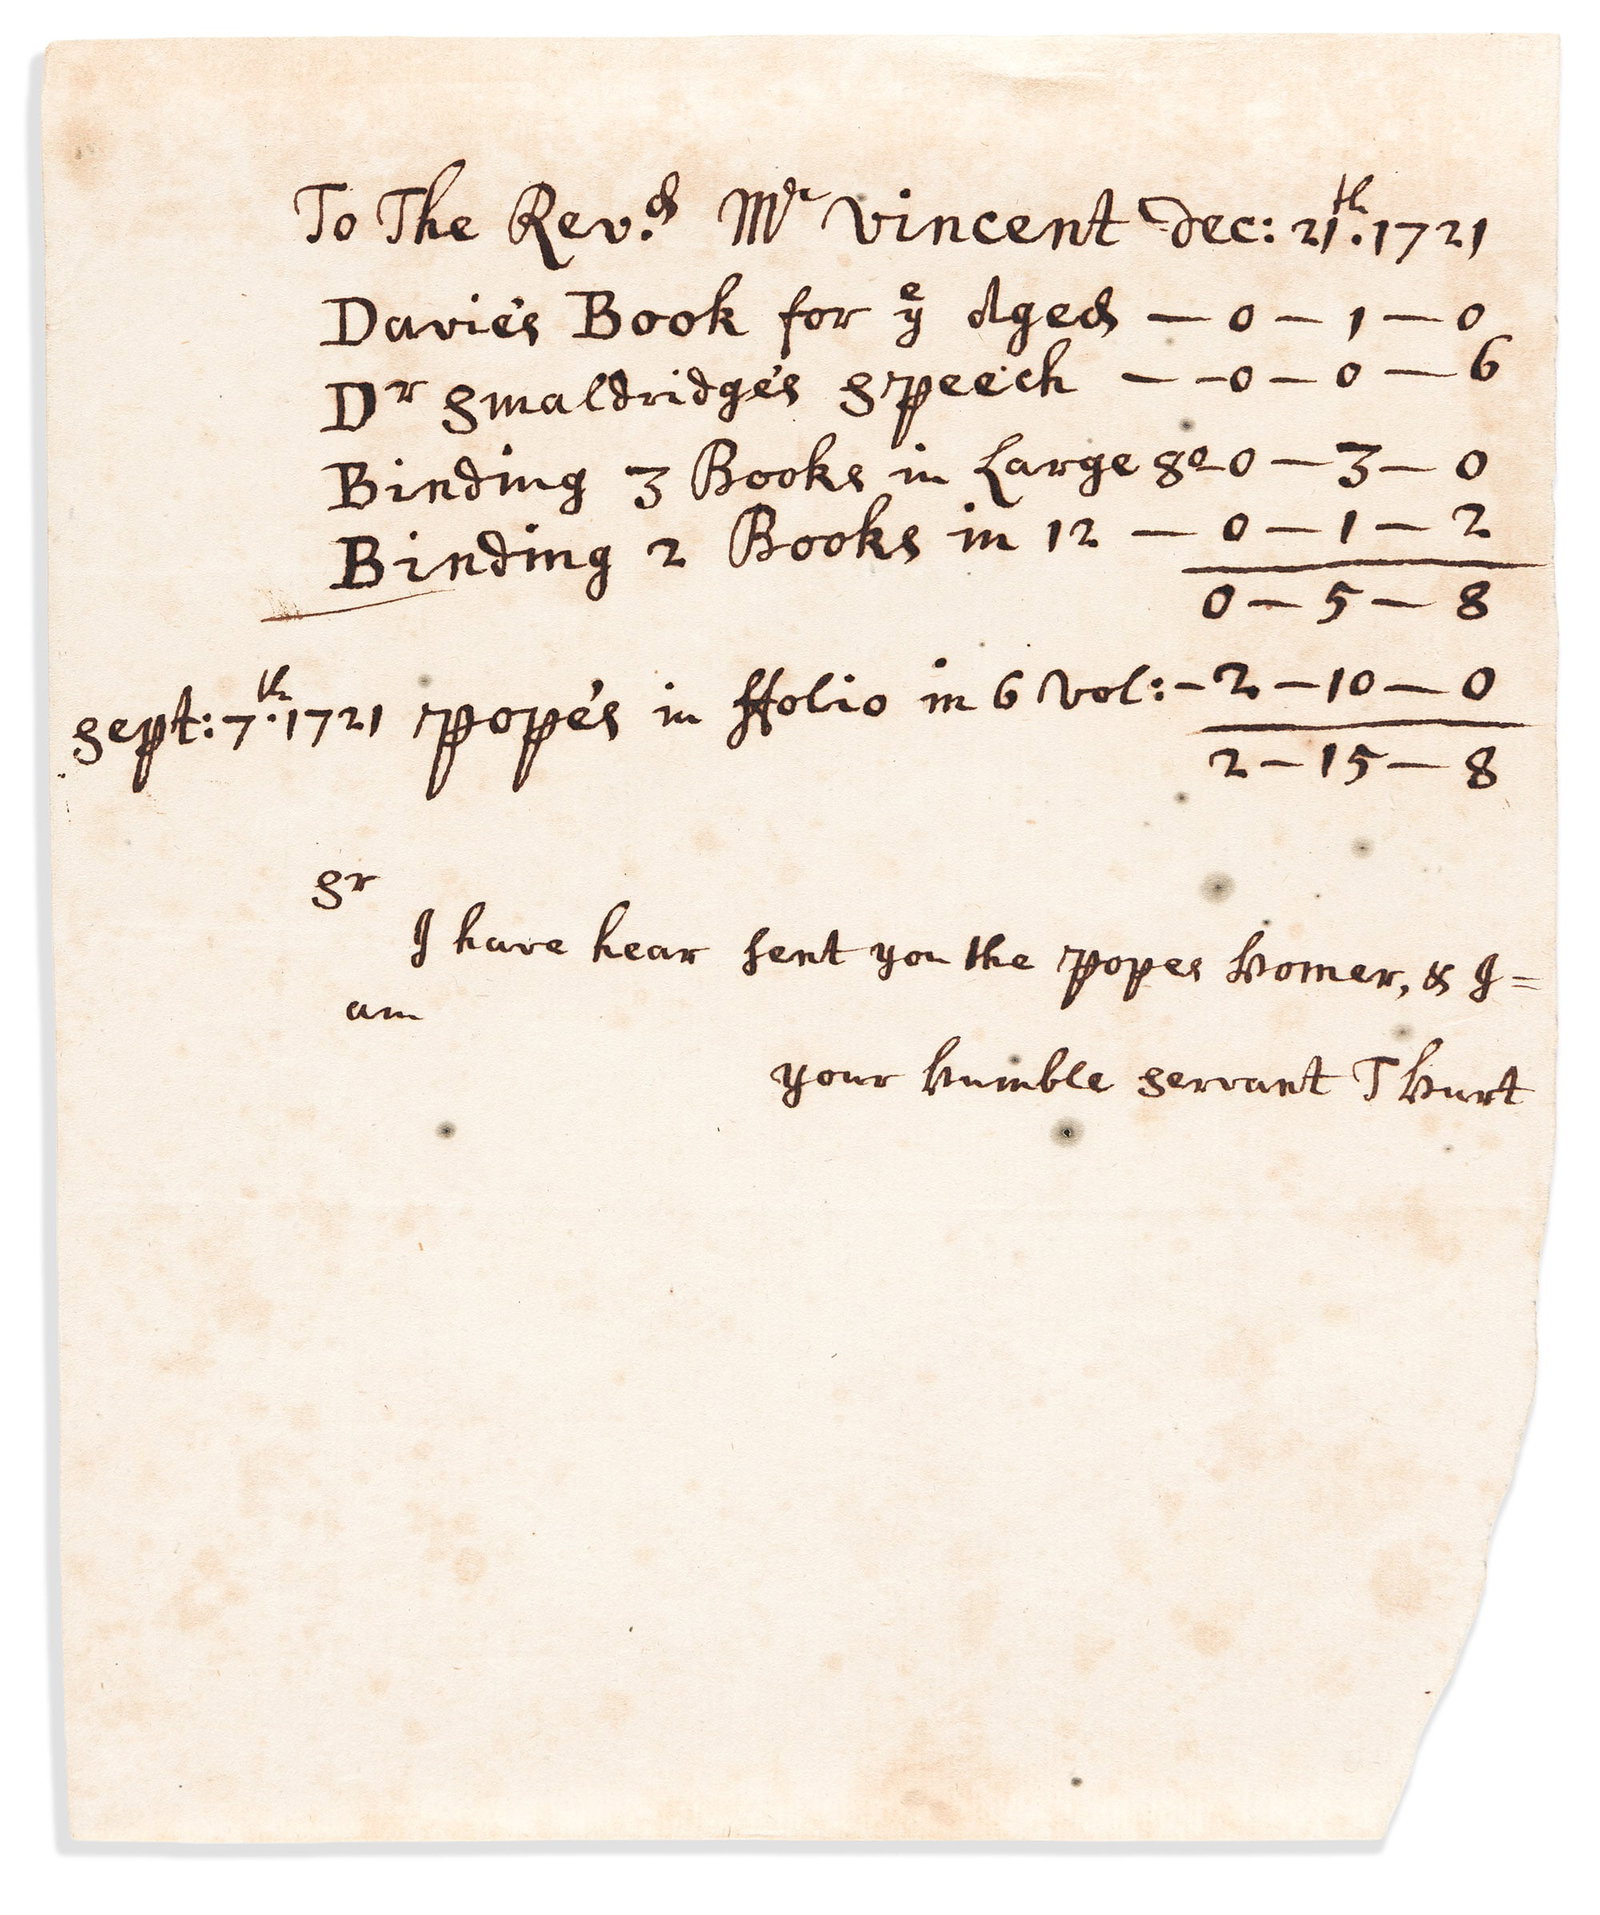 To The Rev.d Mr Vincent Dec: 21.th 1721
Davie's Book for ye Aged — 0 — 1 — 0
Dr Smaldridge's Speech — — 0 — 0 — 6
Binding 3 Books in Large 8o 0 — 3 — 0
Binding 2 Books in 12 — 0 — 1 — 2
0 — 5 — 8
Sept: 7.th 1721 pope's in ffolio in 6 Vol: — 2 — 10 — 0
2 — 15 — 8
Sr
I have hear sent you the popes Homer, & I =
am
your Humble Servant T Hurt